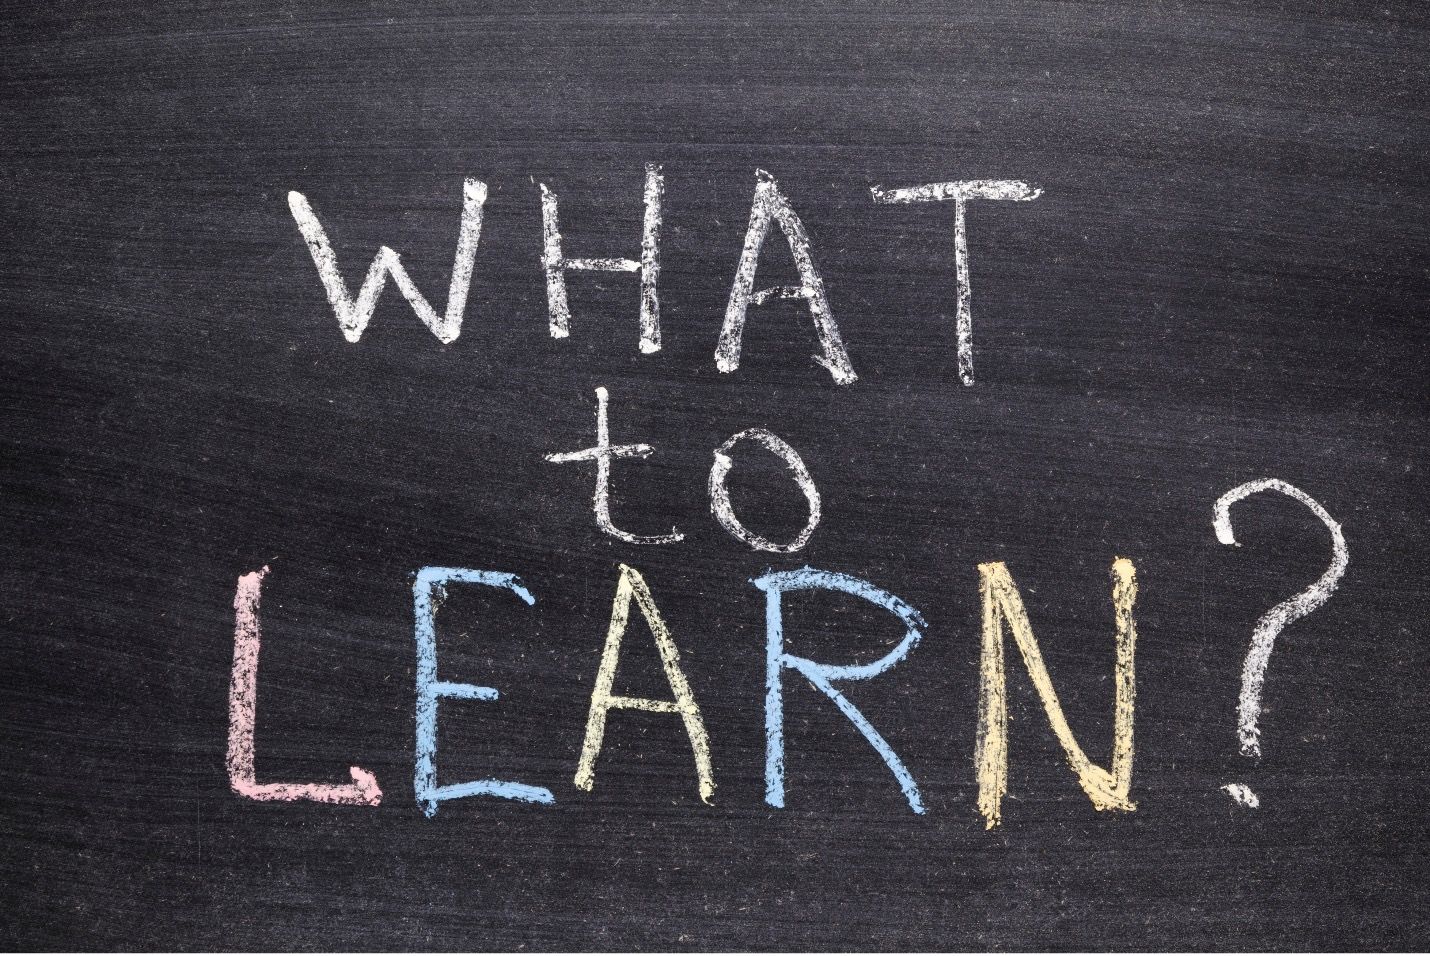 WHAT
to
LEARN?